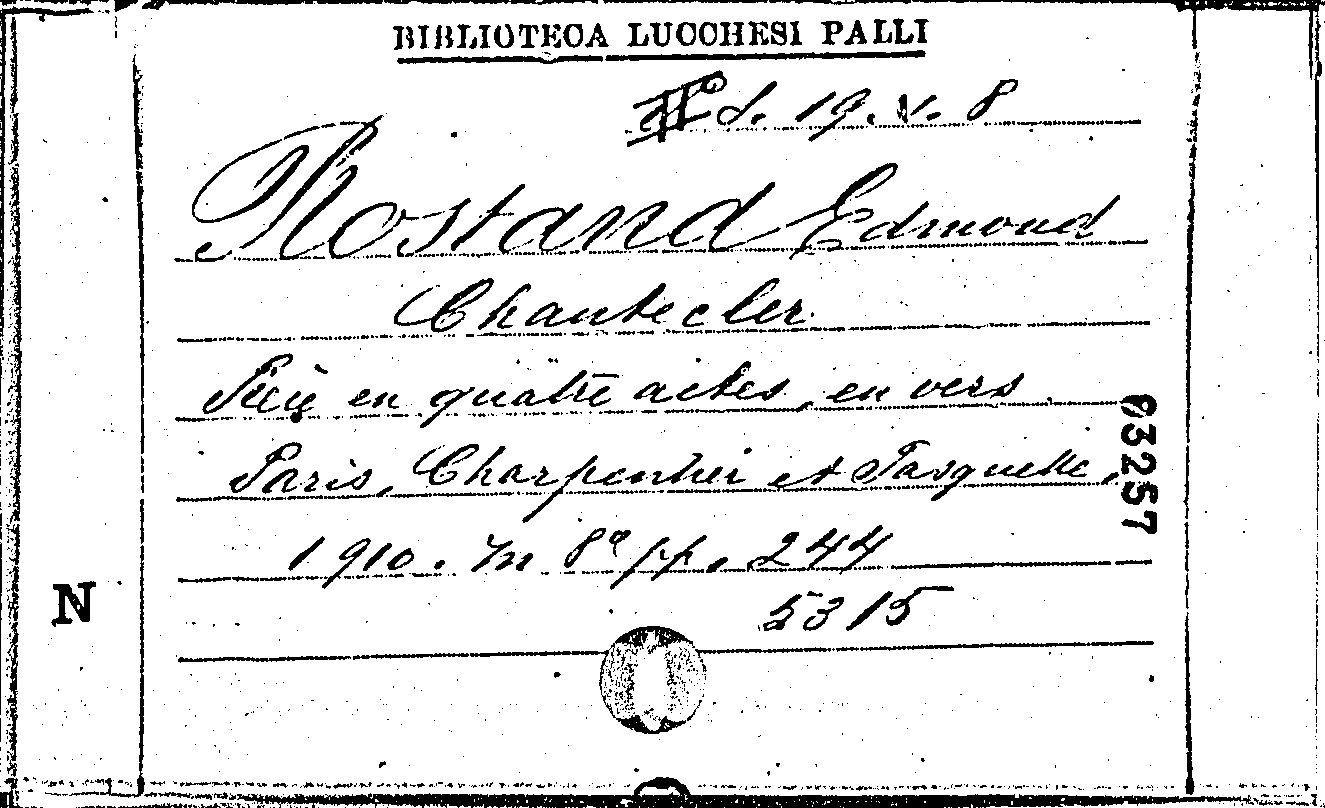 BIBLIOTECA LUCCHESI PALLI
d. 19. v. 8
Rostand Edmond
Chantecler
Pièce en quatre actes, en vers
Paris, Charpentier et Fasquelle,
1910. In 8° pp. 244
5315
93257
N